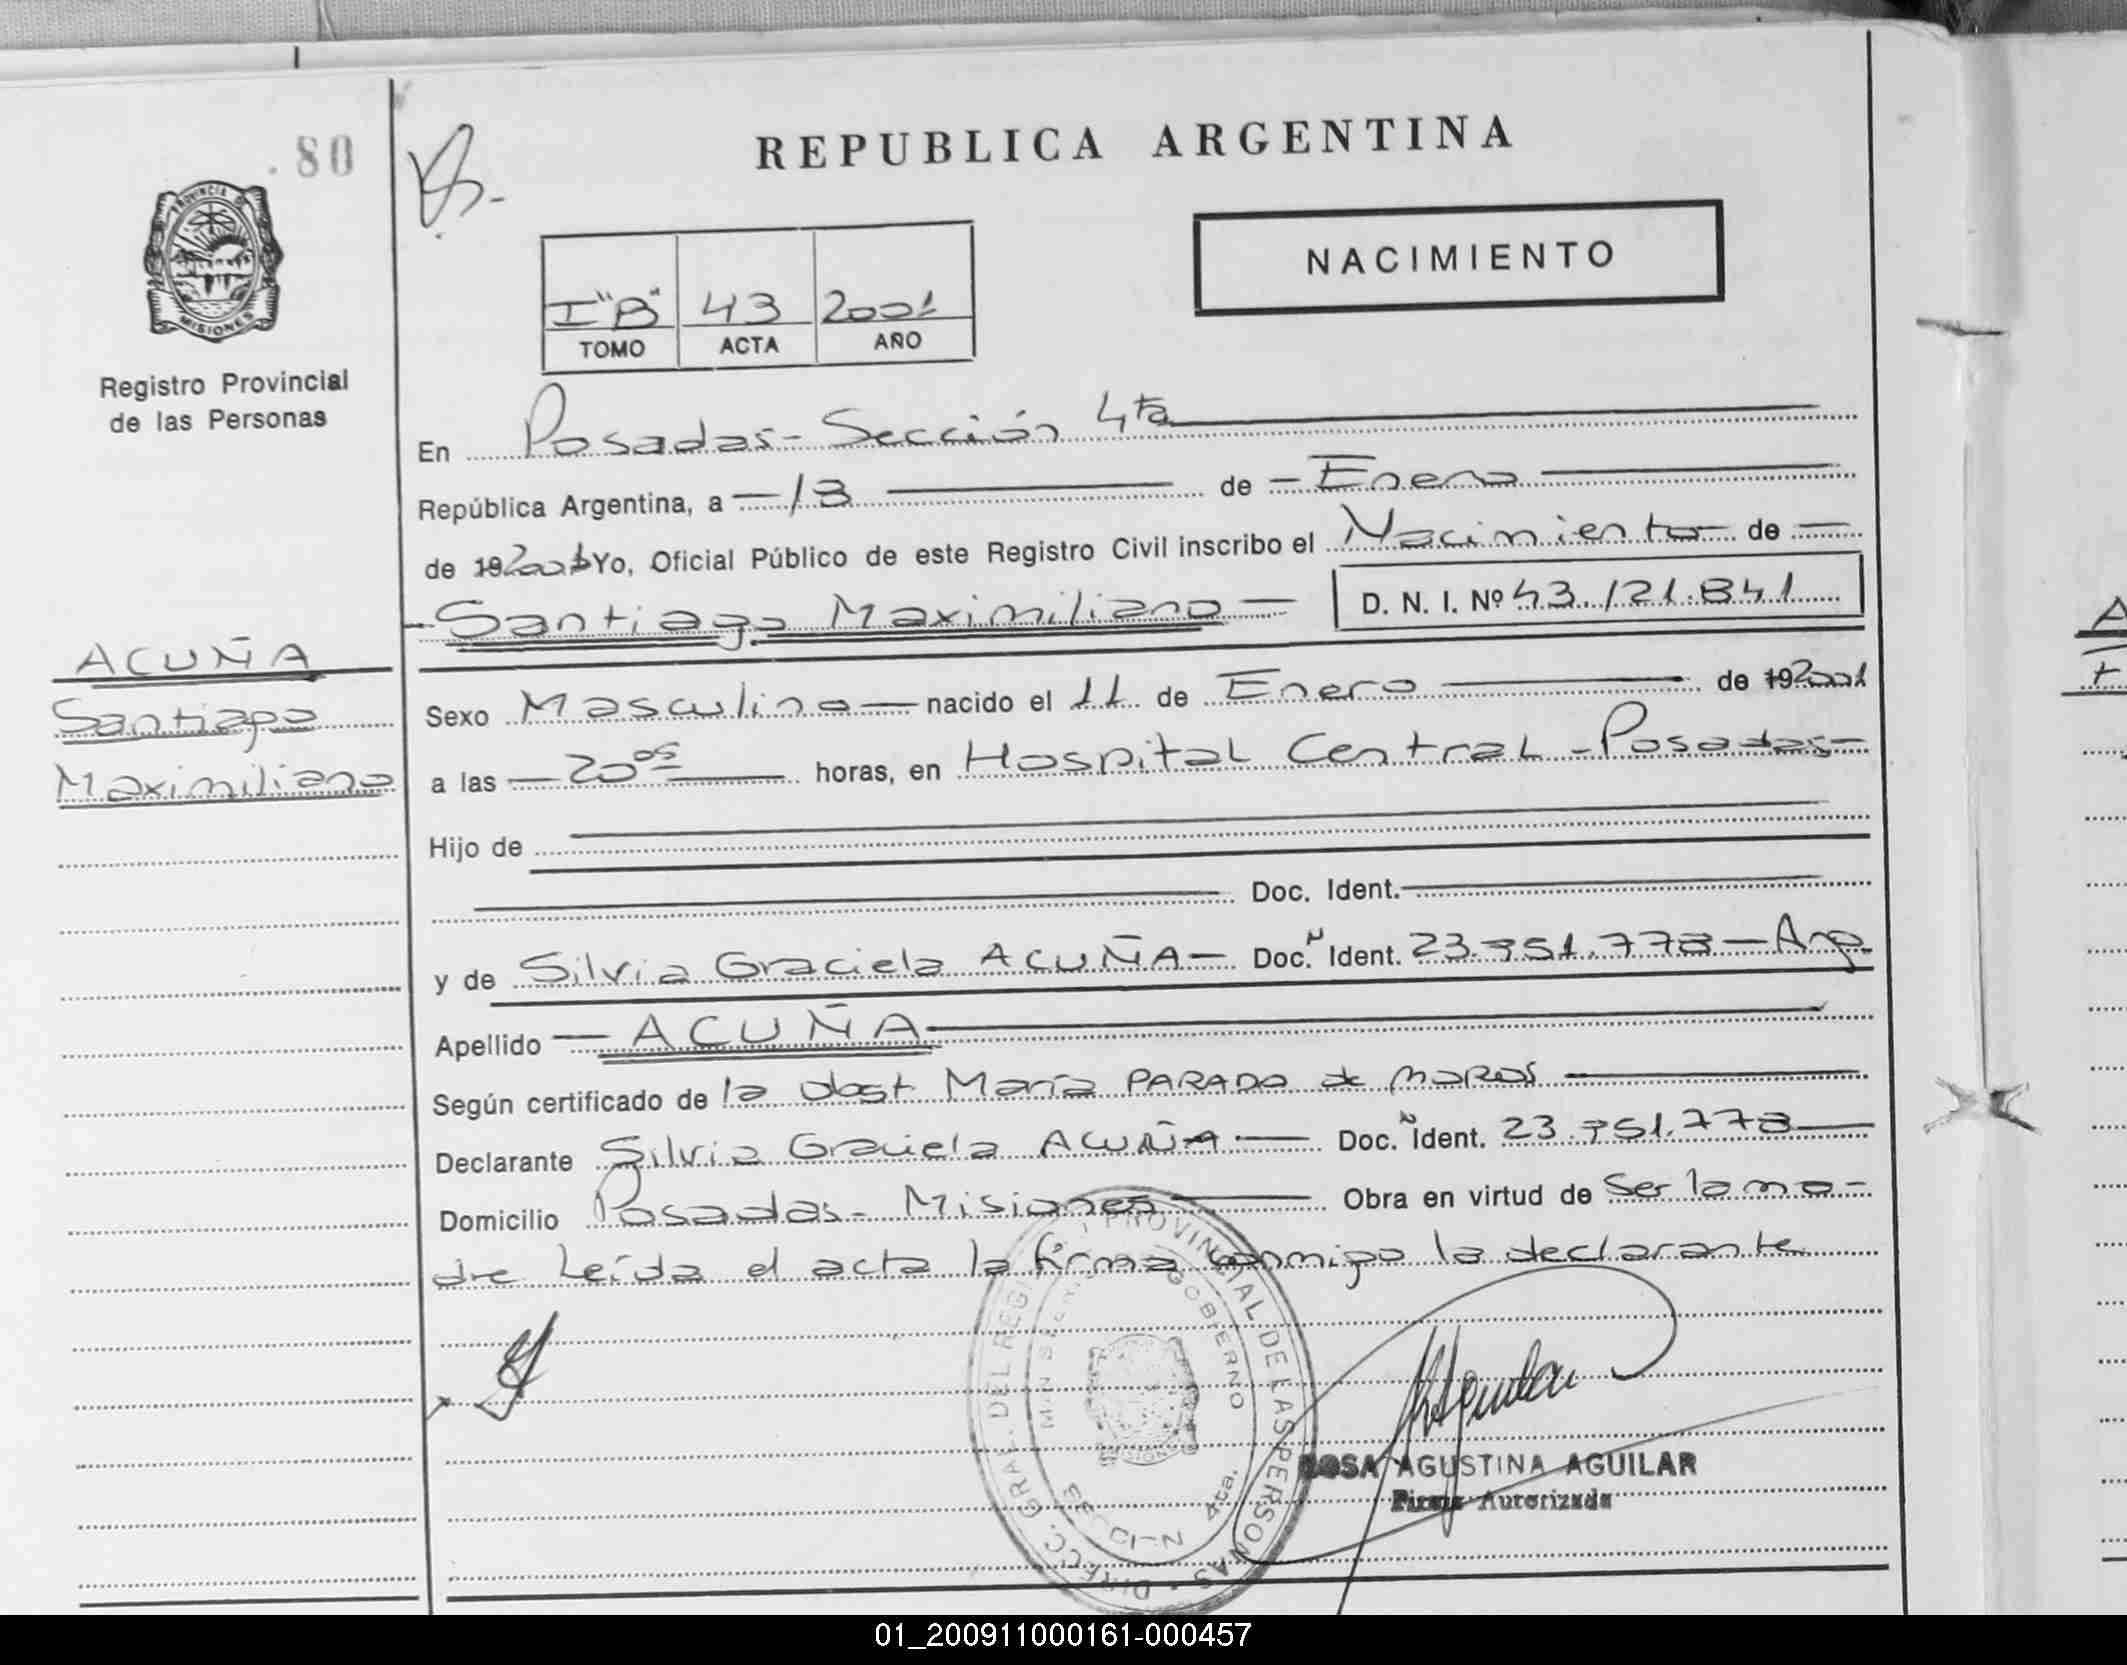 .80
REPUBLICA ARGENTINA
PROVINCIA DE
MISIONES
NACIMIENTO
I"B" 43 2001
TOMO ACTA AÑO
Registro Provincial
de las Personas
En Posadas - Sección 4ta
República Argentina, a - 13 de - Enero
de 192001 Yo, Oficial Público de este Registro Civil inscribo el Nacimiento de -
- Santiago Maximiliano - D. N. I. Nº 43.121.841
ACUÑA
Santiago
Maximiliano
Sexo Masculino - nacido el 11 de Enero de 192001
a las - 20 05 horas, en Hospital Central - Posadas -
Hijo de
Doc. Ident.
y de Silvia Graciela ACUÑA - Doc. N Ident. 23.751.773 - Arg.
Apellido - ACUÑA
Según certificado de la obst María PARADA de
Declarante Silvia Graciela ACUÑA - Doc. N Ident. 23.751.773
Domicilio Posadas - Misiones Obra en virtud de Ser la ma-
dre Leída el acta la firma conmigo la declarante
DIRECC. GRAL. DEL REGI PROVINCIAL DE LAS PERSONAS
GOBIERNO
4ta.
ROSA AGUSTINA AGUILAR
Firma Autorizada
01_200911000161-000457